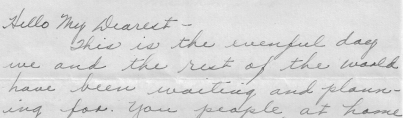 Hello My Dearest -
This is the evenful day
we and the rest of the world
have been waiting and plann-
ing for. You people at home